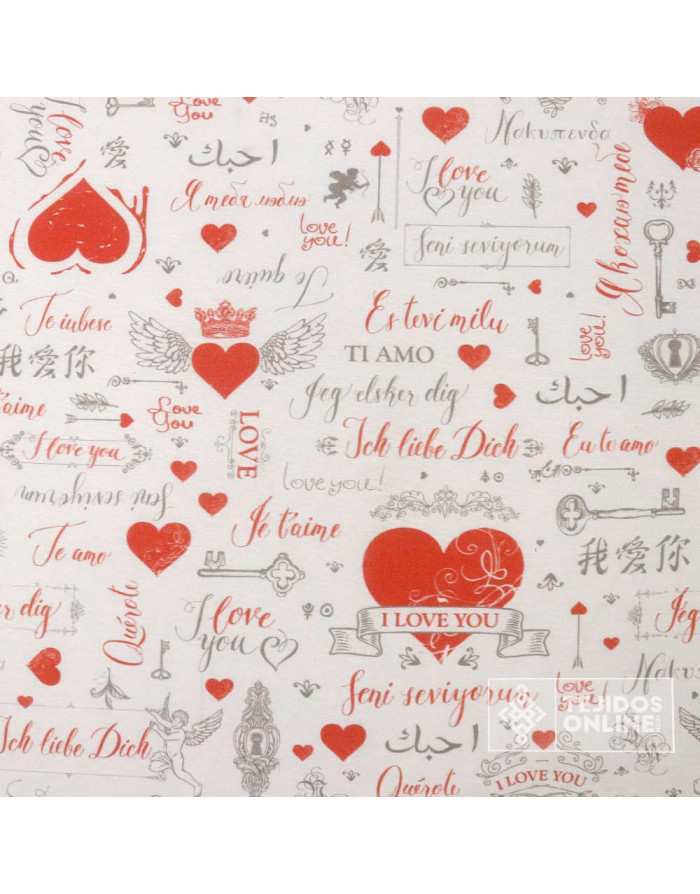 I love you
Love You
爱
احبك
Я тебя люблю
love you!
I love you
Seni seviyorum
Я кохаю тебе
Te quiero
爱
Te iubesc
Es tevi mīlu
love you!
TI AMO
我爱你
Jeg elsker dig
احبك
t'aime
Love You
LOVE
I love you
Ich liebe Dich
Eu te amo
love you!
Seni seviyorum
Je t'aime
Te amo
我愛你
Quérote
er dig
I love you
I LOVE YOU
Jeg
Seni seviyorum
love you!
TEJIDOS
ONLINE
Ich liebe Dich
احبك
Quérote
I LOVE YOU